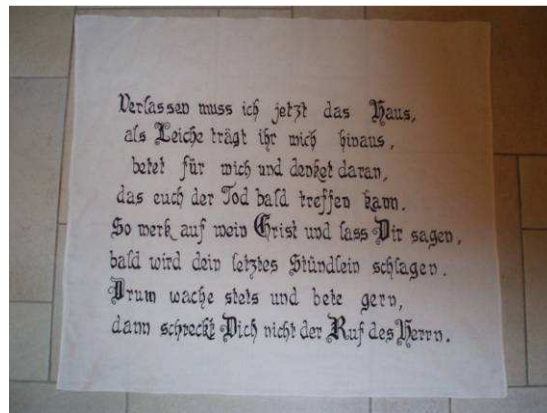 Verlassen muss ich jetzt das Haus,
als Leiche trägt ihr mich hinaus,
betet für mich und denket daran,
das euch der Tod bald treffen kann.
So merk auf mein Crist und lass Dir sagen,
bald wird dein letztes Stündlein schlagen.
Drum wache stets und bete gern,
dann schreckt Dich nicht der Ruf des Herrn.